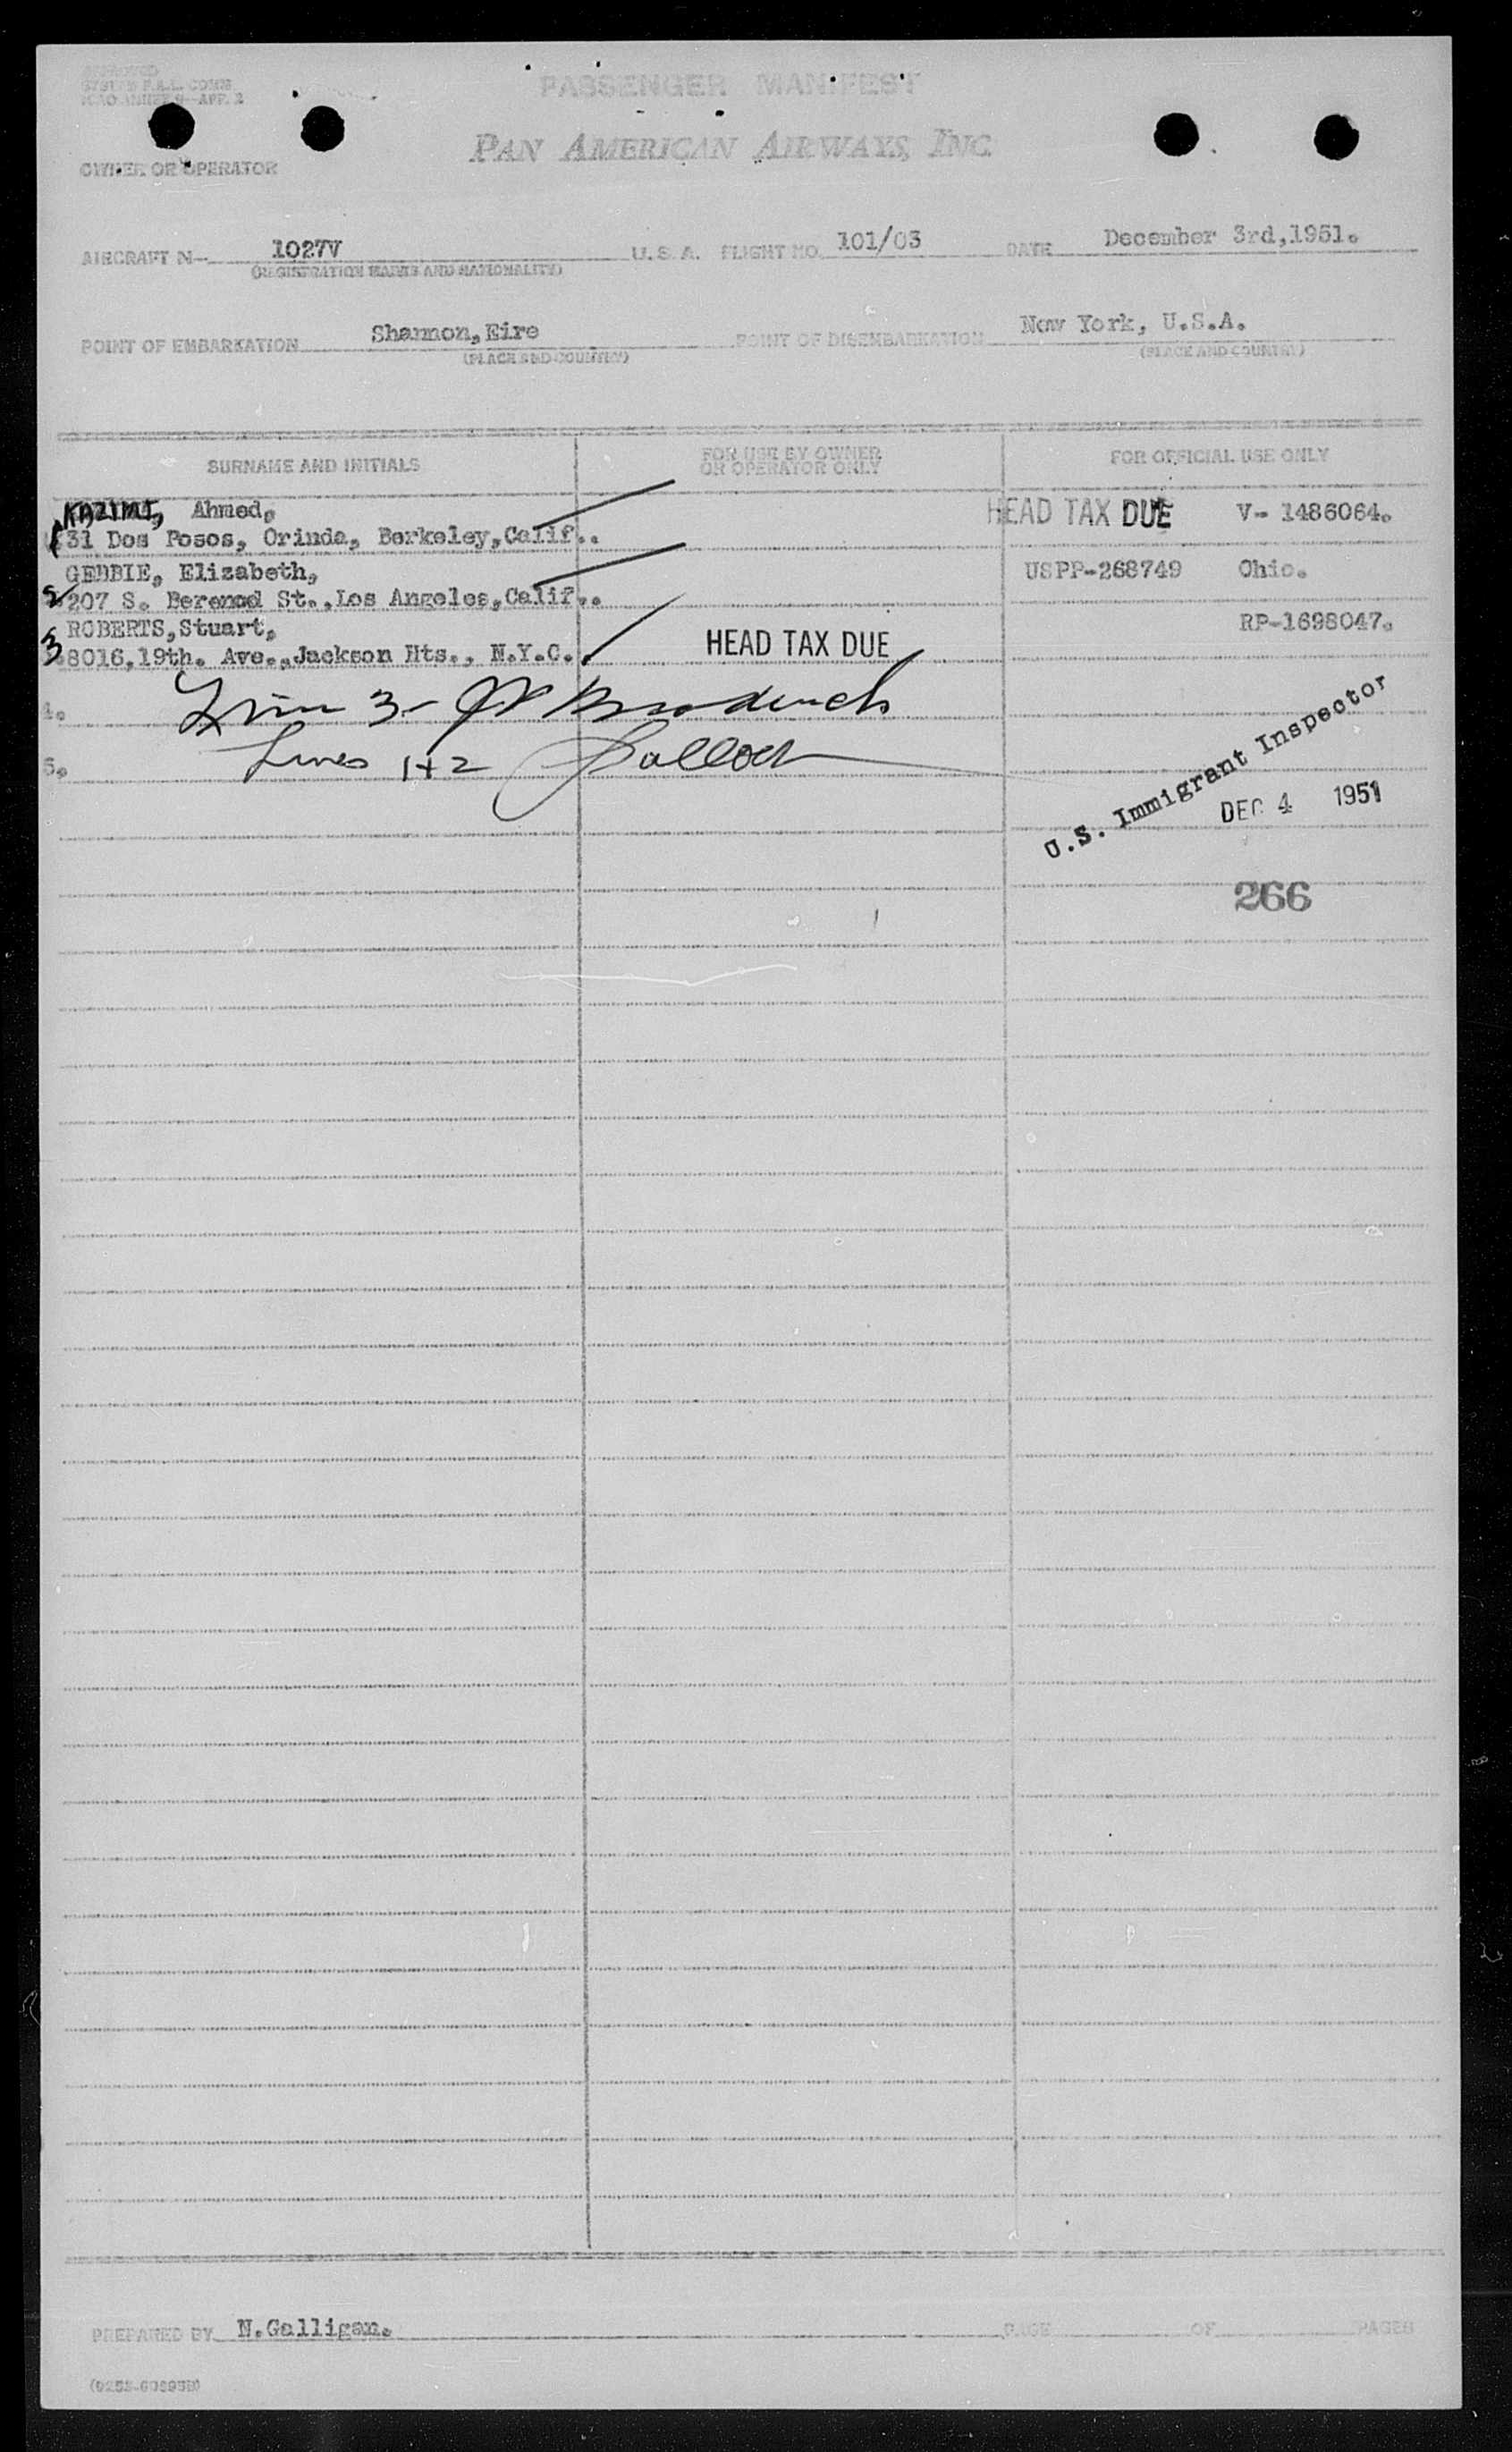 APPROVED
ICAO ANNEX 9—APP. 2
PASSENGER MANIFEST
PAN AMERICAN AIRWAYS, INC.
OWNER OR OPERATOR
AIRCRAFT N— 1027V U.S.A. FLIGHT NO. 101/03 DATE December 3rd,1951.
(REGISTRATION MARKS AND NATIONALITY)
POINT OF EMBARKATION Shannon,Eire POINT OF DISEMBARKATION New York, U.S.A.
(PLACE AND COUNTRY) (PLACE AND COUNTRY)
SURNAME AND INITIALS FOR USE BY OWNER OR OPERATOR ONLY FOR OFFICIAL USE ONLY
KAZIMI, Ahmed, HEAD TAX DUE V- 1486064.
1 31 Dos Posos, Orinda, Berkeley,Calif..
GEBBIE, Elizabeth, USPP-268749 Ohio.
2 207 S. St.,Los Angeles,Calif..
ROBERTS,Stuart, RP-1698047.
3 8016,19th. Ave.,Jackson Hts., N.Y.C. HEAD TAX DUE
4. 3-
5. Lines 1+2
U.S. Immigrant Inspector
DEC 4 1951
266
PREPARED BY N.Galligan. PAGE OF PAGES